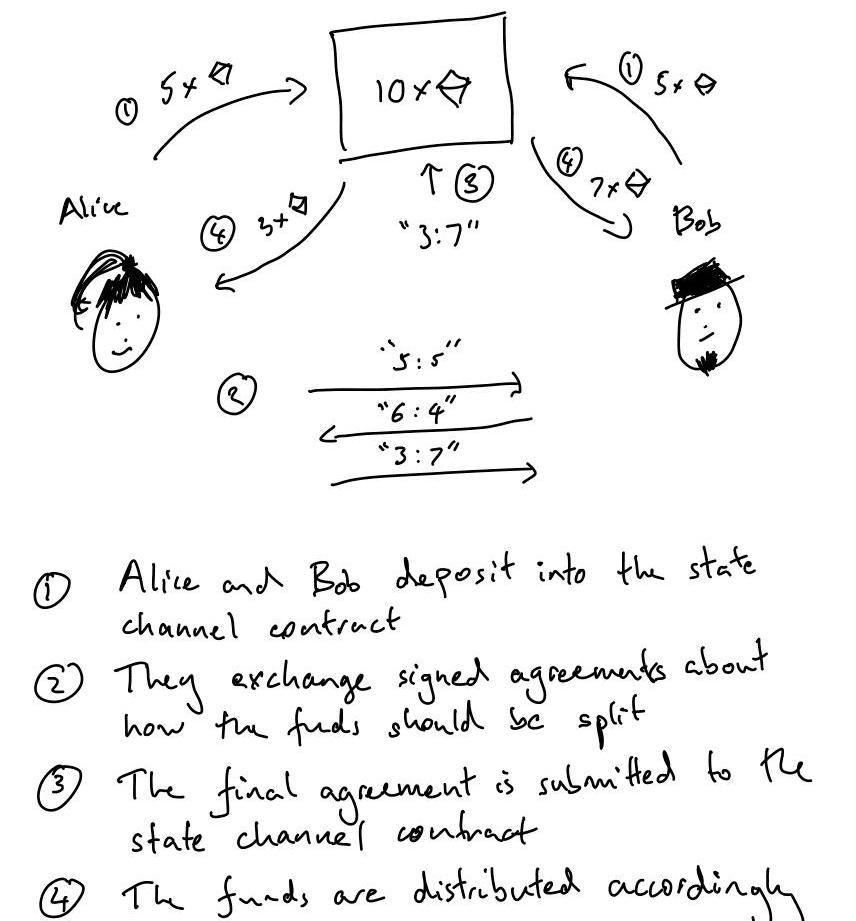 ① 5x
10x
① 5x
④ 7x
↑ ③
Alice
④ 3x
"3:7"
Bob
"5:5"
②
"6:4"
"3:7"
① Alice and Bob deposit into the state
channel contract
② They exchange signed agreements about
how the funds should be split
③ The final agreement is submitted to the
state channel contract
④ The funds are distributed accordingly